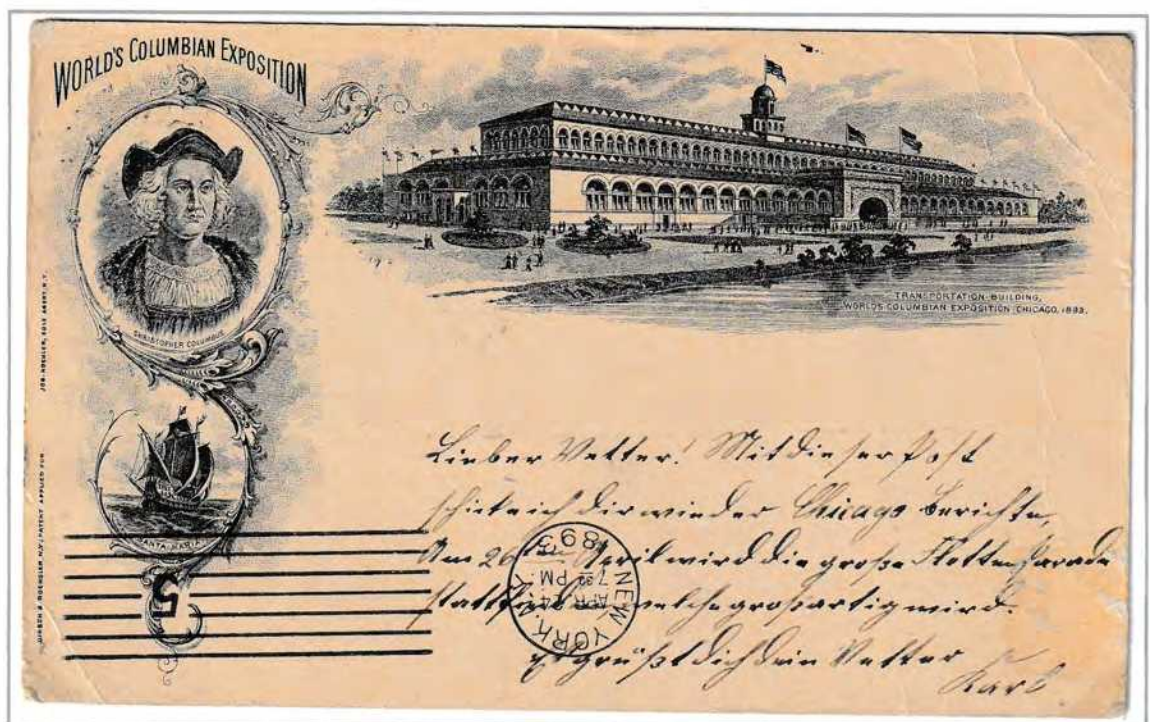 WORLD'S COLUMBIAN EXPOSITION
CHRISTOPHER COLUMBUS
SANTA MARIA
JOS. KOEHLER, SOLE AGENT, N.Y.
PATENT APPLIED FOR
TRANSPORTATION BUILDING,
WORLD'S COLUMBIAN EXPOSITION, CHICAGO, 1893.
Lieber Vetter! Mit dieser Post
schicke ich dir wieder Chicago Berichte,
Am 26ten April wird die große Flottenparade
stattfinden welche großartig wird.
Es grüßt dich dein Vetter
Karl
NEW YORK, N.Y.
APR 24
7 30 PM
1893
5